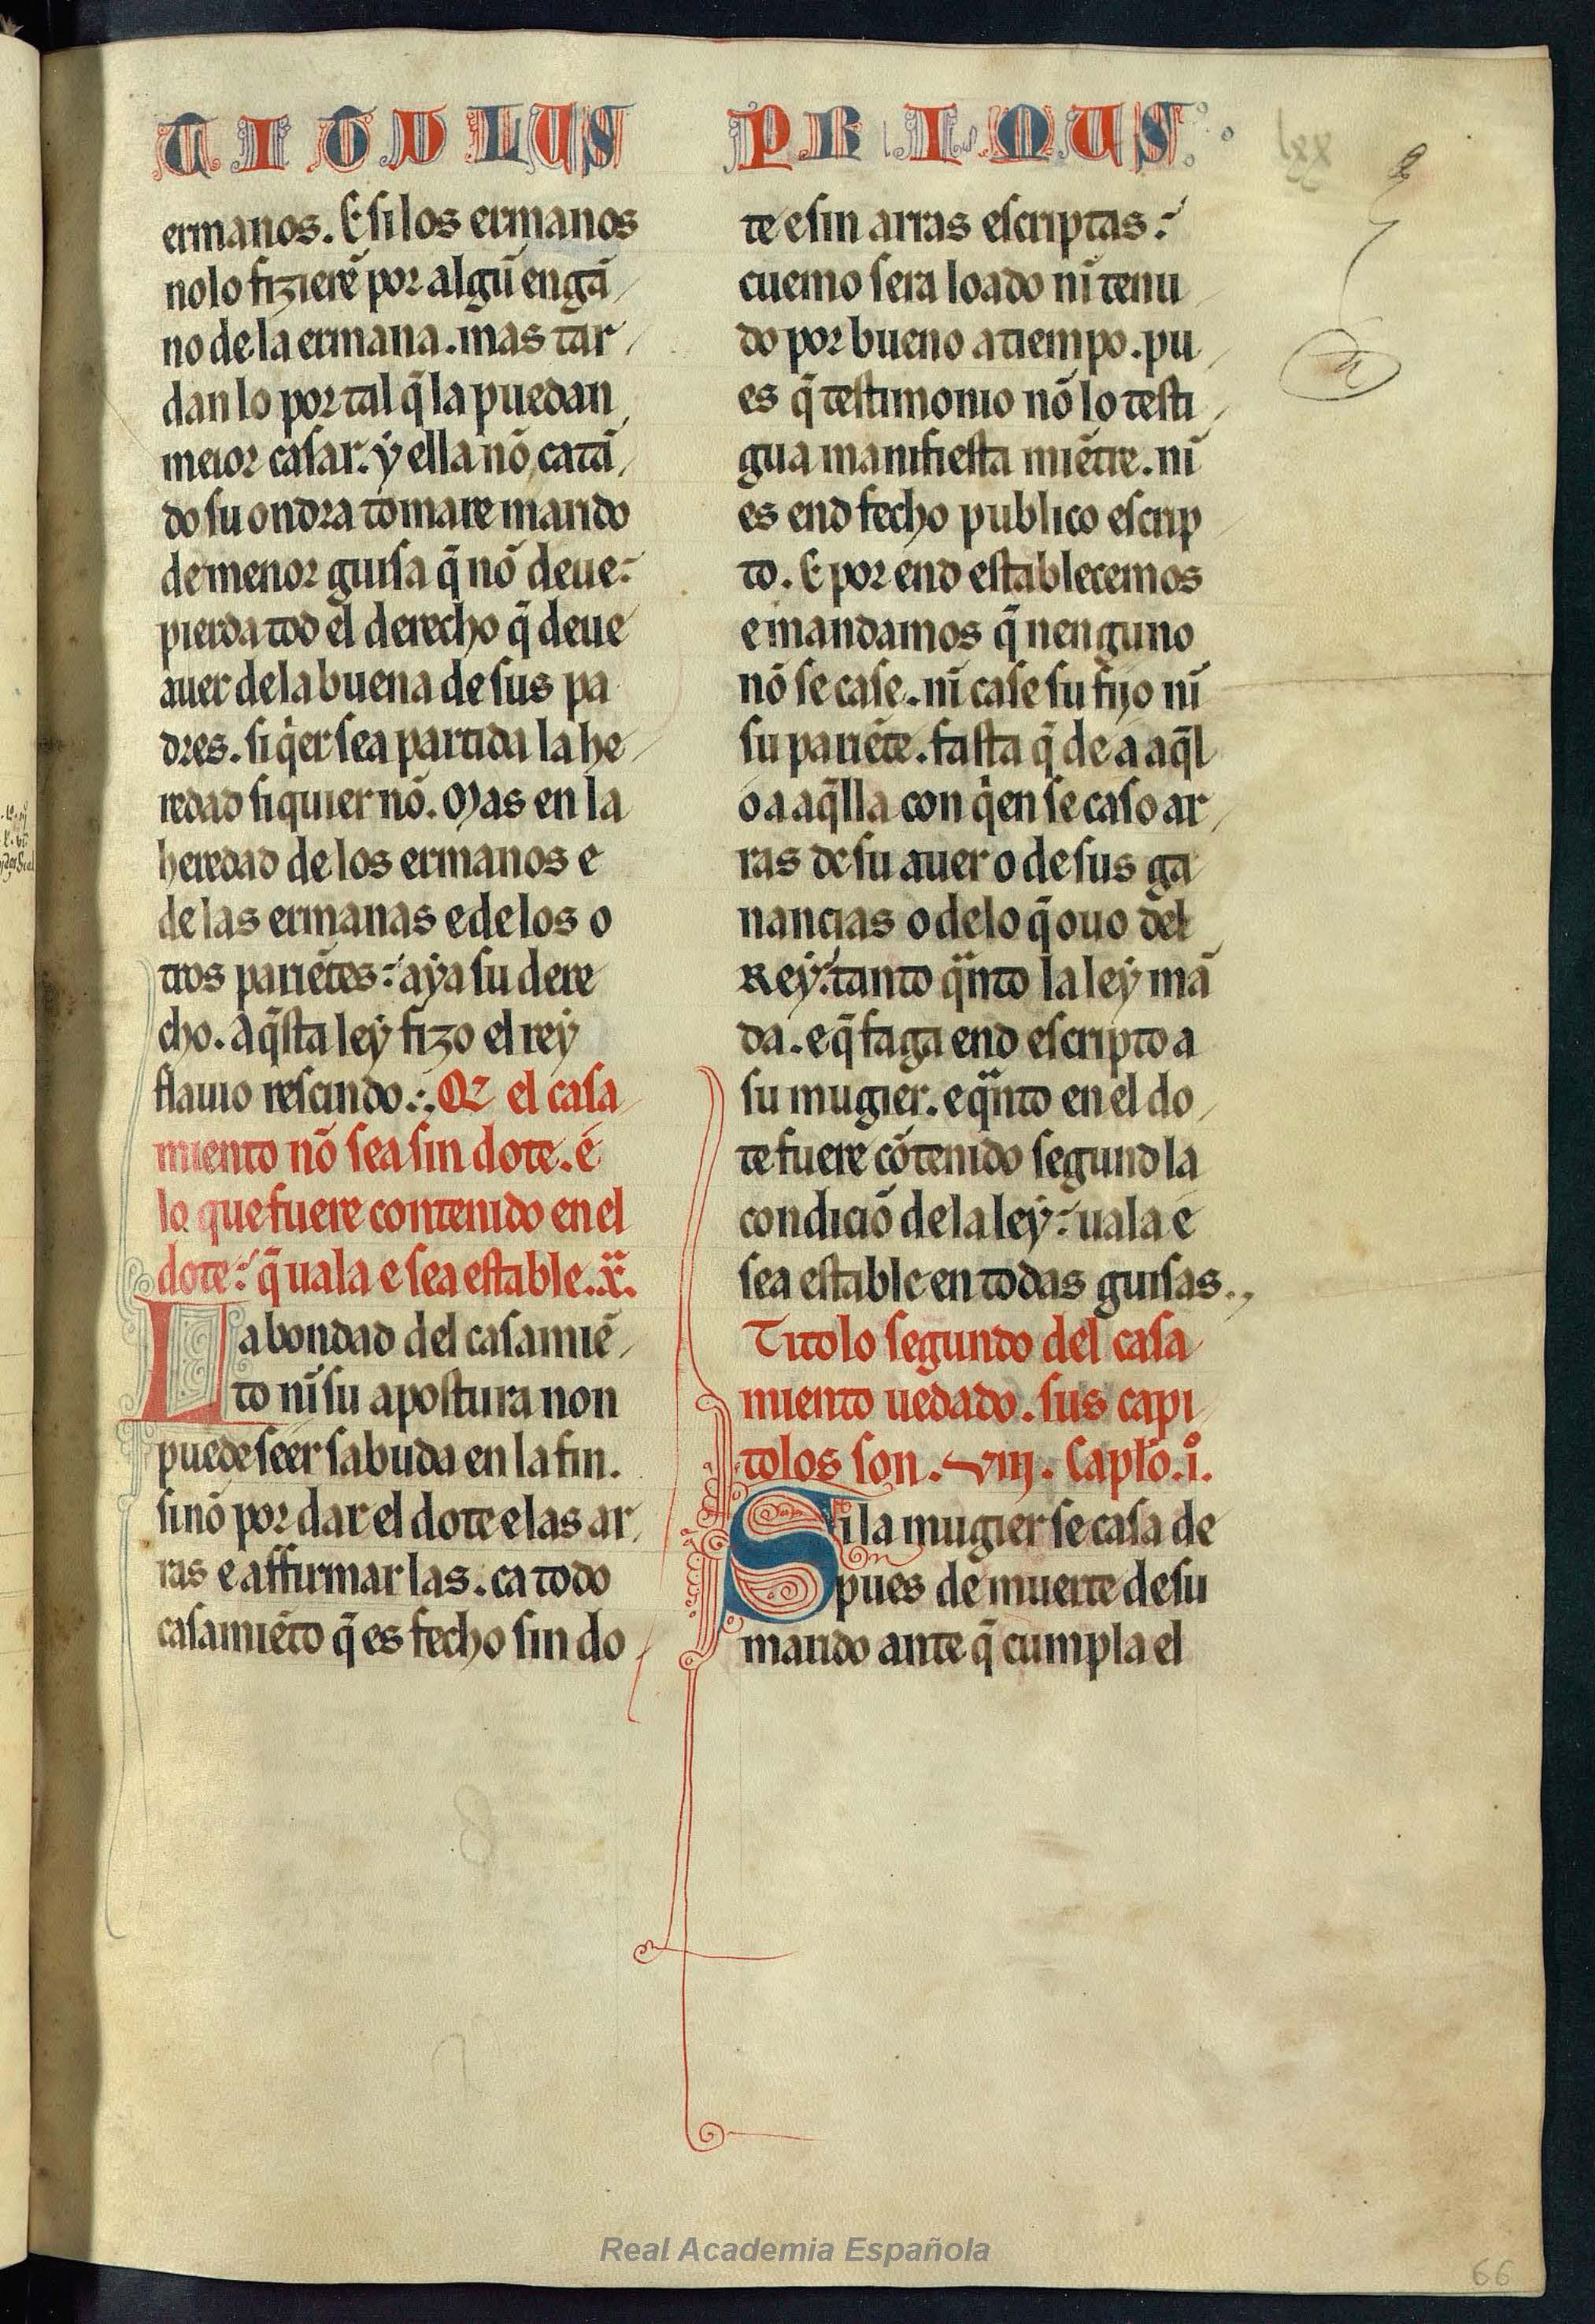 TITULUS PRIMUS
ermanos. E si los ermanos
no lo fizierẽ por algũ engã
no de la ermana. mas tar
dan lo por tal q̃ la puedan
meior casar. ẏ ella nõ catã
do su ondra tomare marido
de menor guisa q̃ nõ deue:
pierda tod el derecho q̃ deue
auer de la buena de sus pa
dres. si q̇er sea partida la he
redad si quier nõ. Mas en la
heredad de los ermanos e
de las ermanas e de los o
tros pariẽtes: aẏa su dere
cho. Aq̃sta leẏ fizo el reẏ
flauio rescindo. Q̃ el casa
miento nõ sea sin dote. e
lo que fuere contenido en el
dote: q̃ uala e sea estable. x̃.
La bondad del casamiẽ
to nĩ su apostura non
puede seer sabuda en la fin.
sinõ por dar el dote e las ar
ras e affirmar las. ca todo
casamiẽto q̃ es fecho sin do
te e sin arras escriptas:
cuemo sera loado nĩ tenu
do por bueno a tiempo. pu
es q̃ testimonio nõ lo testi
gua manifiesta miẽtre. nĩ
es end fecho publico escrip
to. E por end establecemos
e mandamos q̃ nenguno
nõ se case. nĩ case su fijo nĩ
su pariẽte. fasta q̃ de a aq̃l
o a aq̃lla con q̇en se caso ar
ras de su auer o de sus ga
nancias o de lo q̃ ouo del
Reẏ: tanto q̃nto la leẏ mã
da. e q̃ faga end escripto a
su mugier. e q̃nto en el do
te fuere cõtenido segund la
condiciõ de la leẏ: uala e
sea estable en todas guisas.
Titolo segundo del casa
miento uedado. sus capi
tolos son. VIII. Capl̃o. i̊.
Si la mugier se casa de
spues de muerte de su
marido ante q̃ cumpla el
lxx
Real Academia Española
66